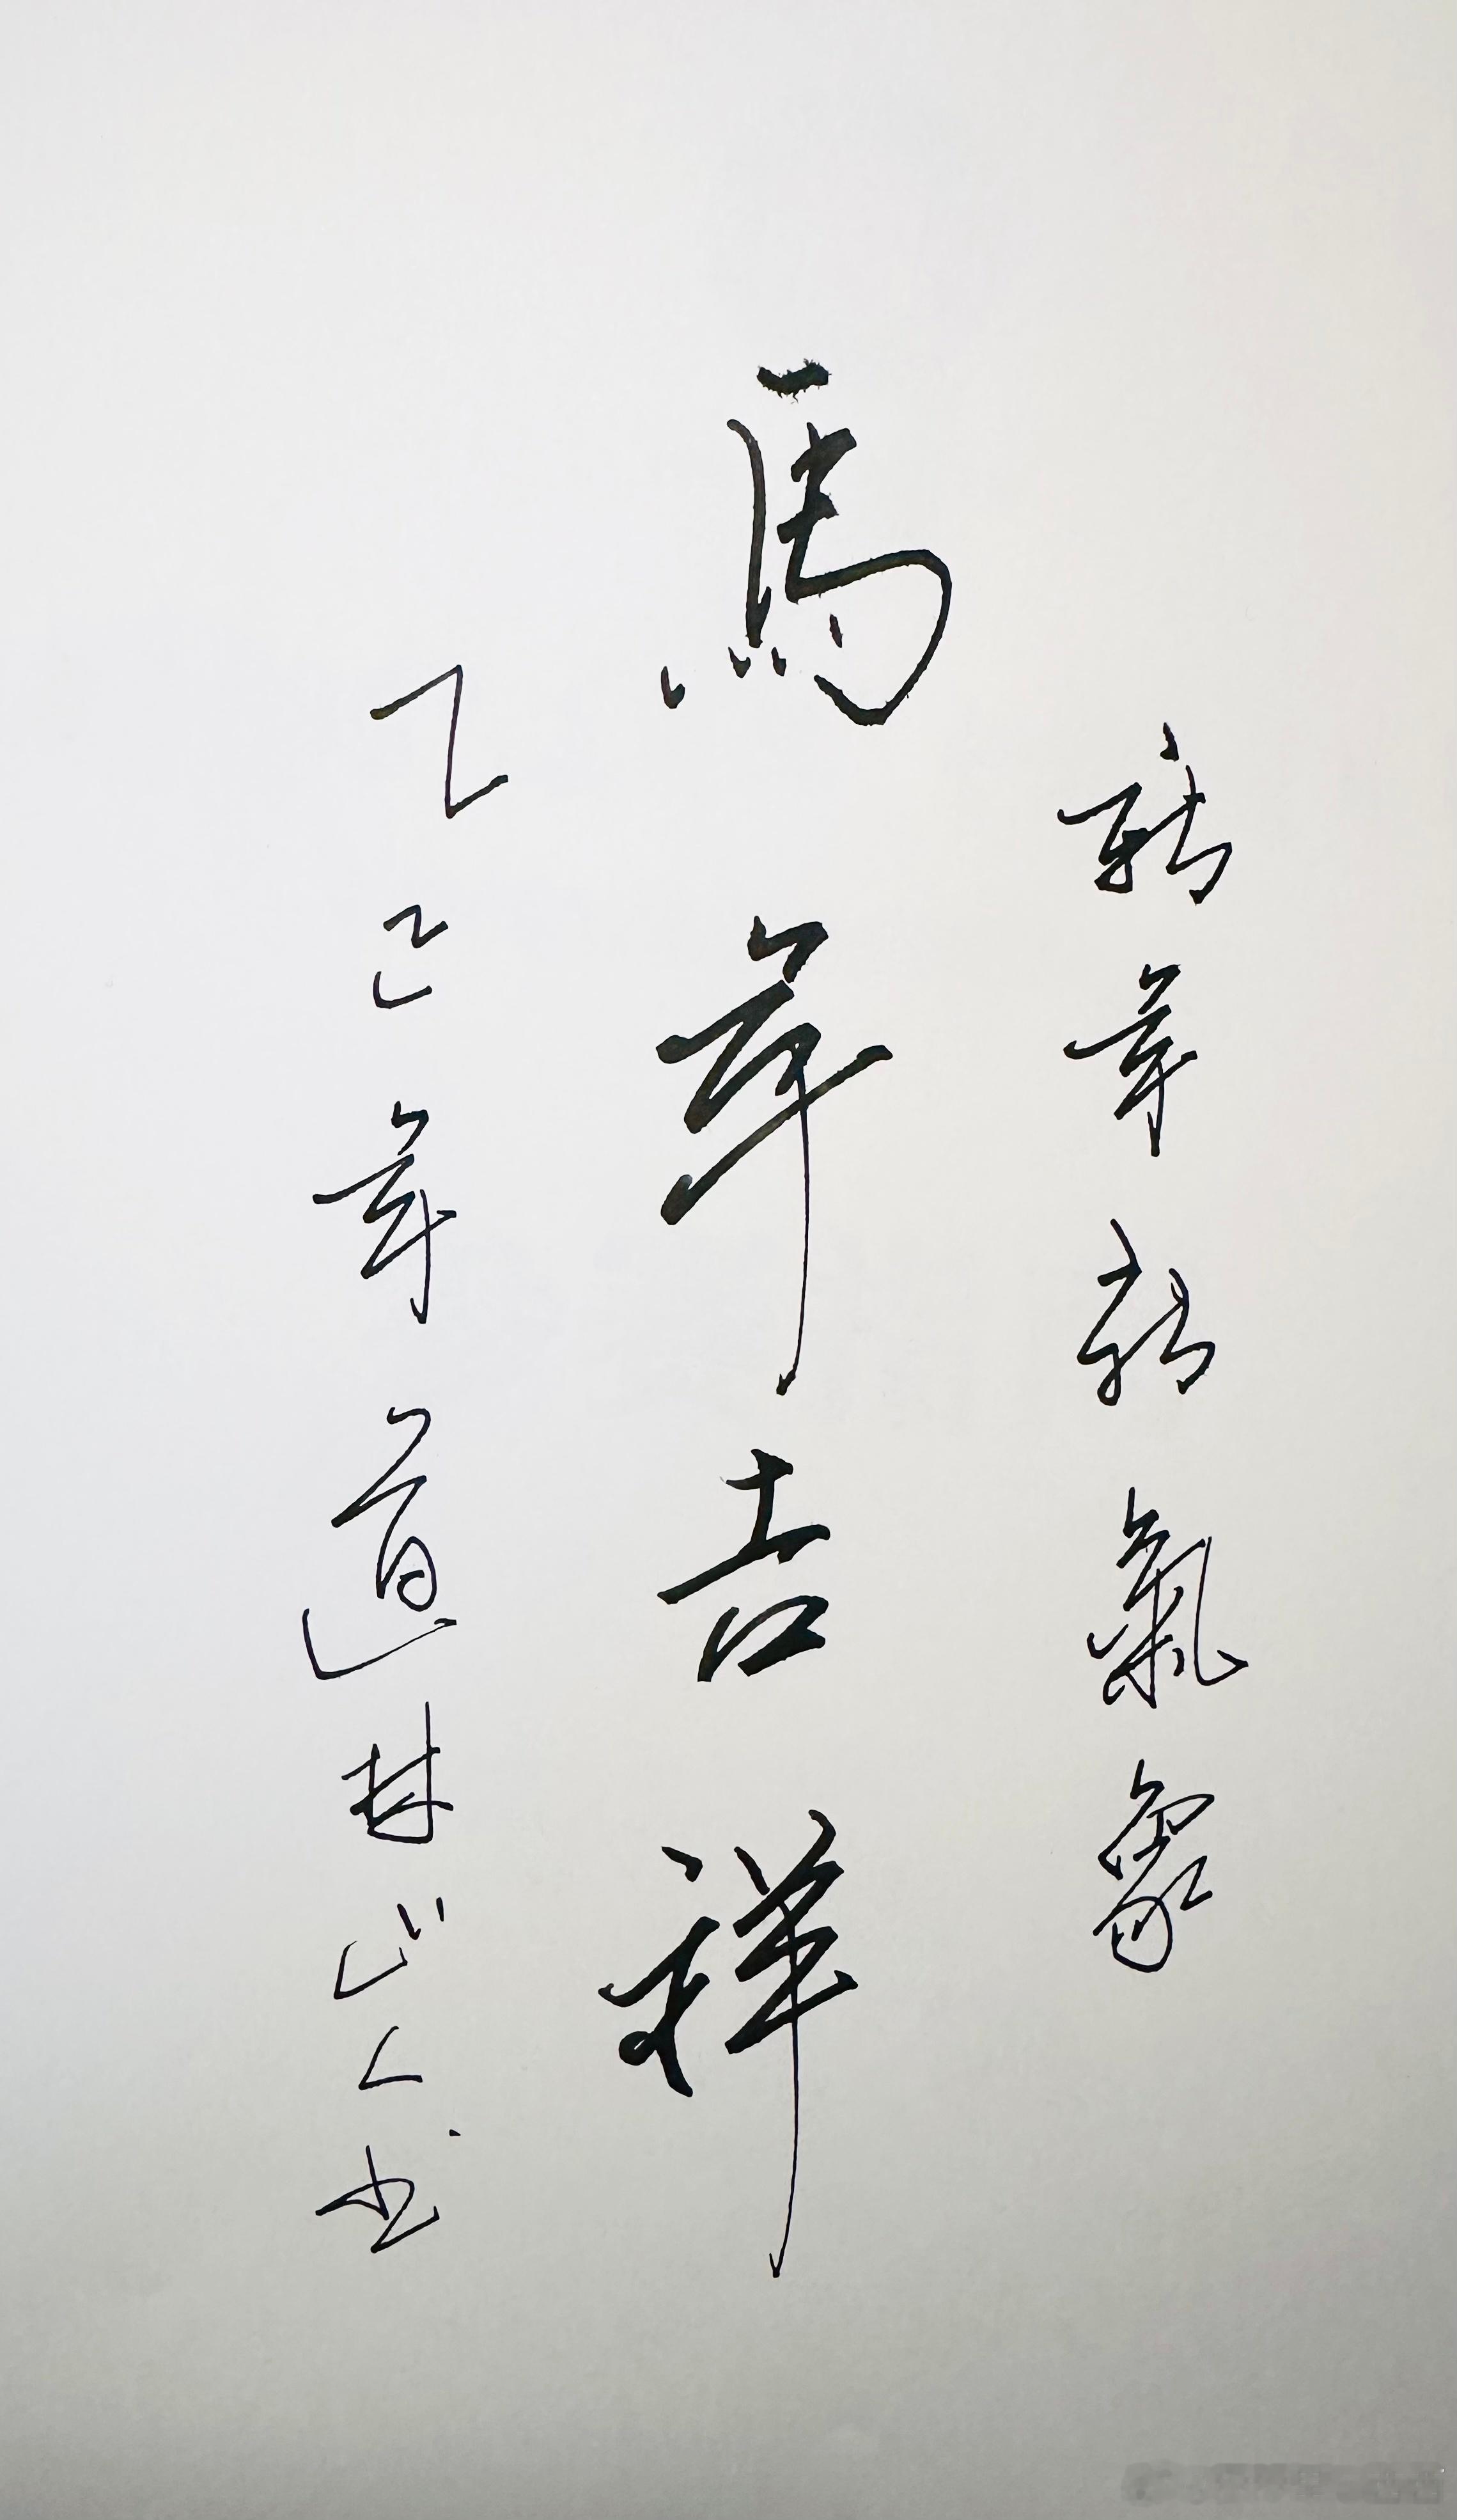 新年新氣象
馬年吉祥
乙巳年道林山人书